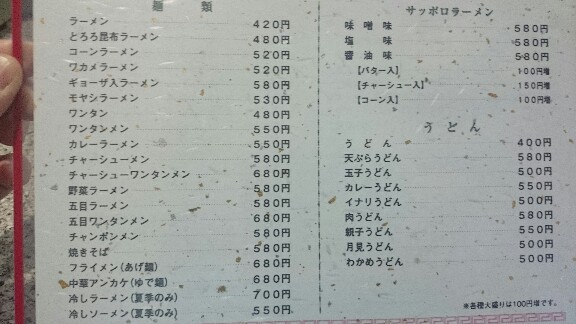 麺 類
ラーメン 420円
とろろ昆布ラーメン 480円
コーンラーメン 520円
ワカメラーメン 520円
ギョーザ入ラーメン 580円
モヤシラーメン 530円
ワンタン 480円
ワンタンメン 550円
カレーラーメン 550円
チャーシューメン 580円
チャーシューワンタンメン 680円
野菜ラーメン 580円
五目ラーメン 580円
五目ワンタンメン 680円
チャンポンメン 580円
焼きそば 580円
フライメン(あげ麺) 680円
中華アンカケ(ゆで麺) 680円
冷しラーメン(夏季のみ) 700円
冷しソーメン(夏季のみ) 550円
サッポロラーメン
味噌味 580円
塩味 580円
醤油味 580円
【バター入】 100円増
【チャーシュー入】 150円増
【コーン入】 100円増
うどん
うどん 400円
天ぷらうどん 580円
玉子うどん 500円
カレーうどん 550円
イナリうどん 500円
肉うどん 580円
親子うどん 550円
月見うどん 500円
わかめうどん 500円
※各種大盛りは100円増です。